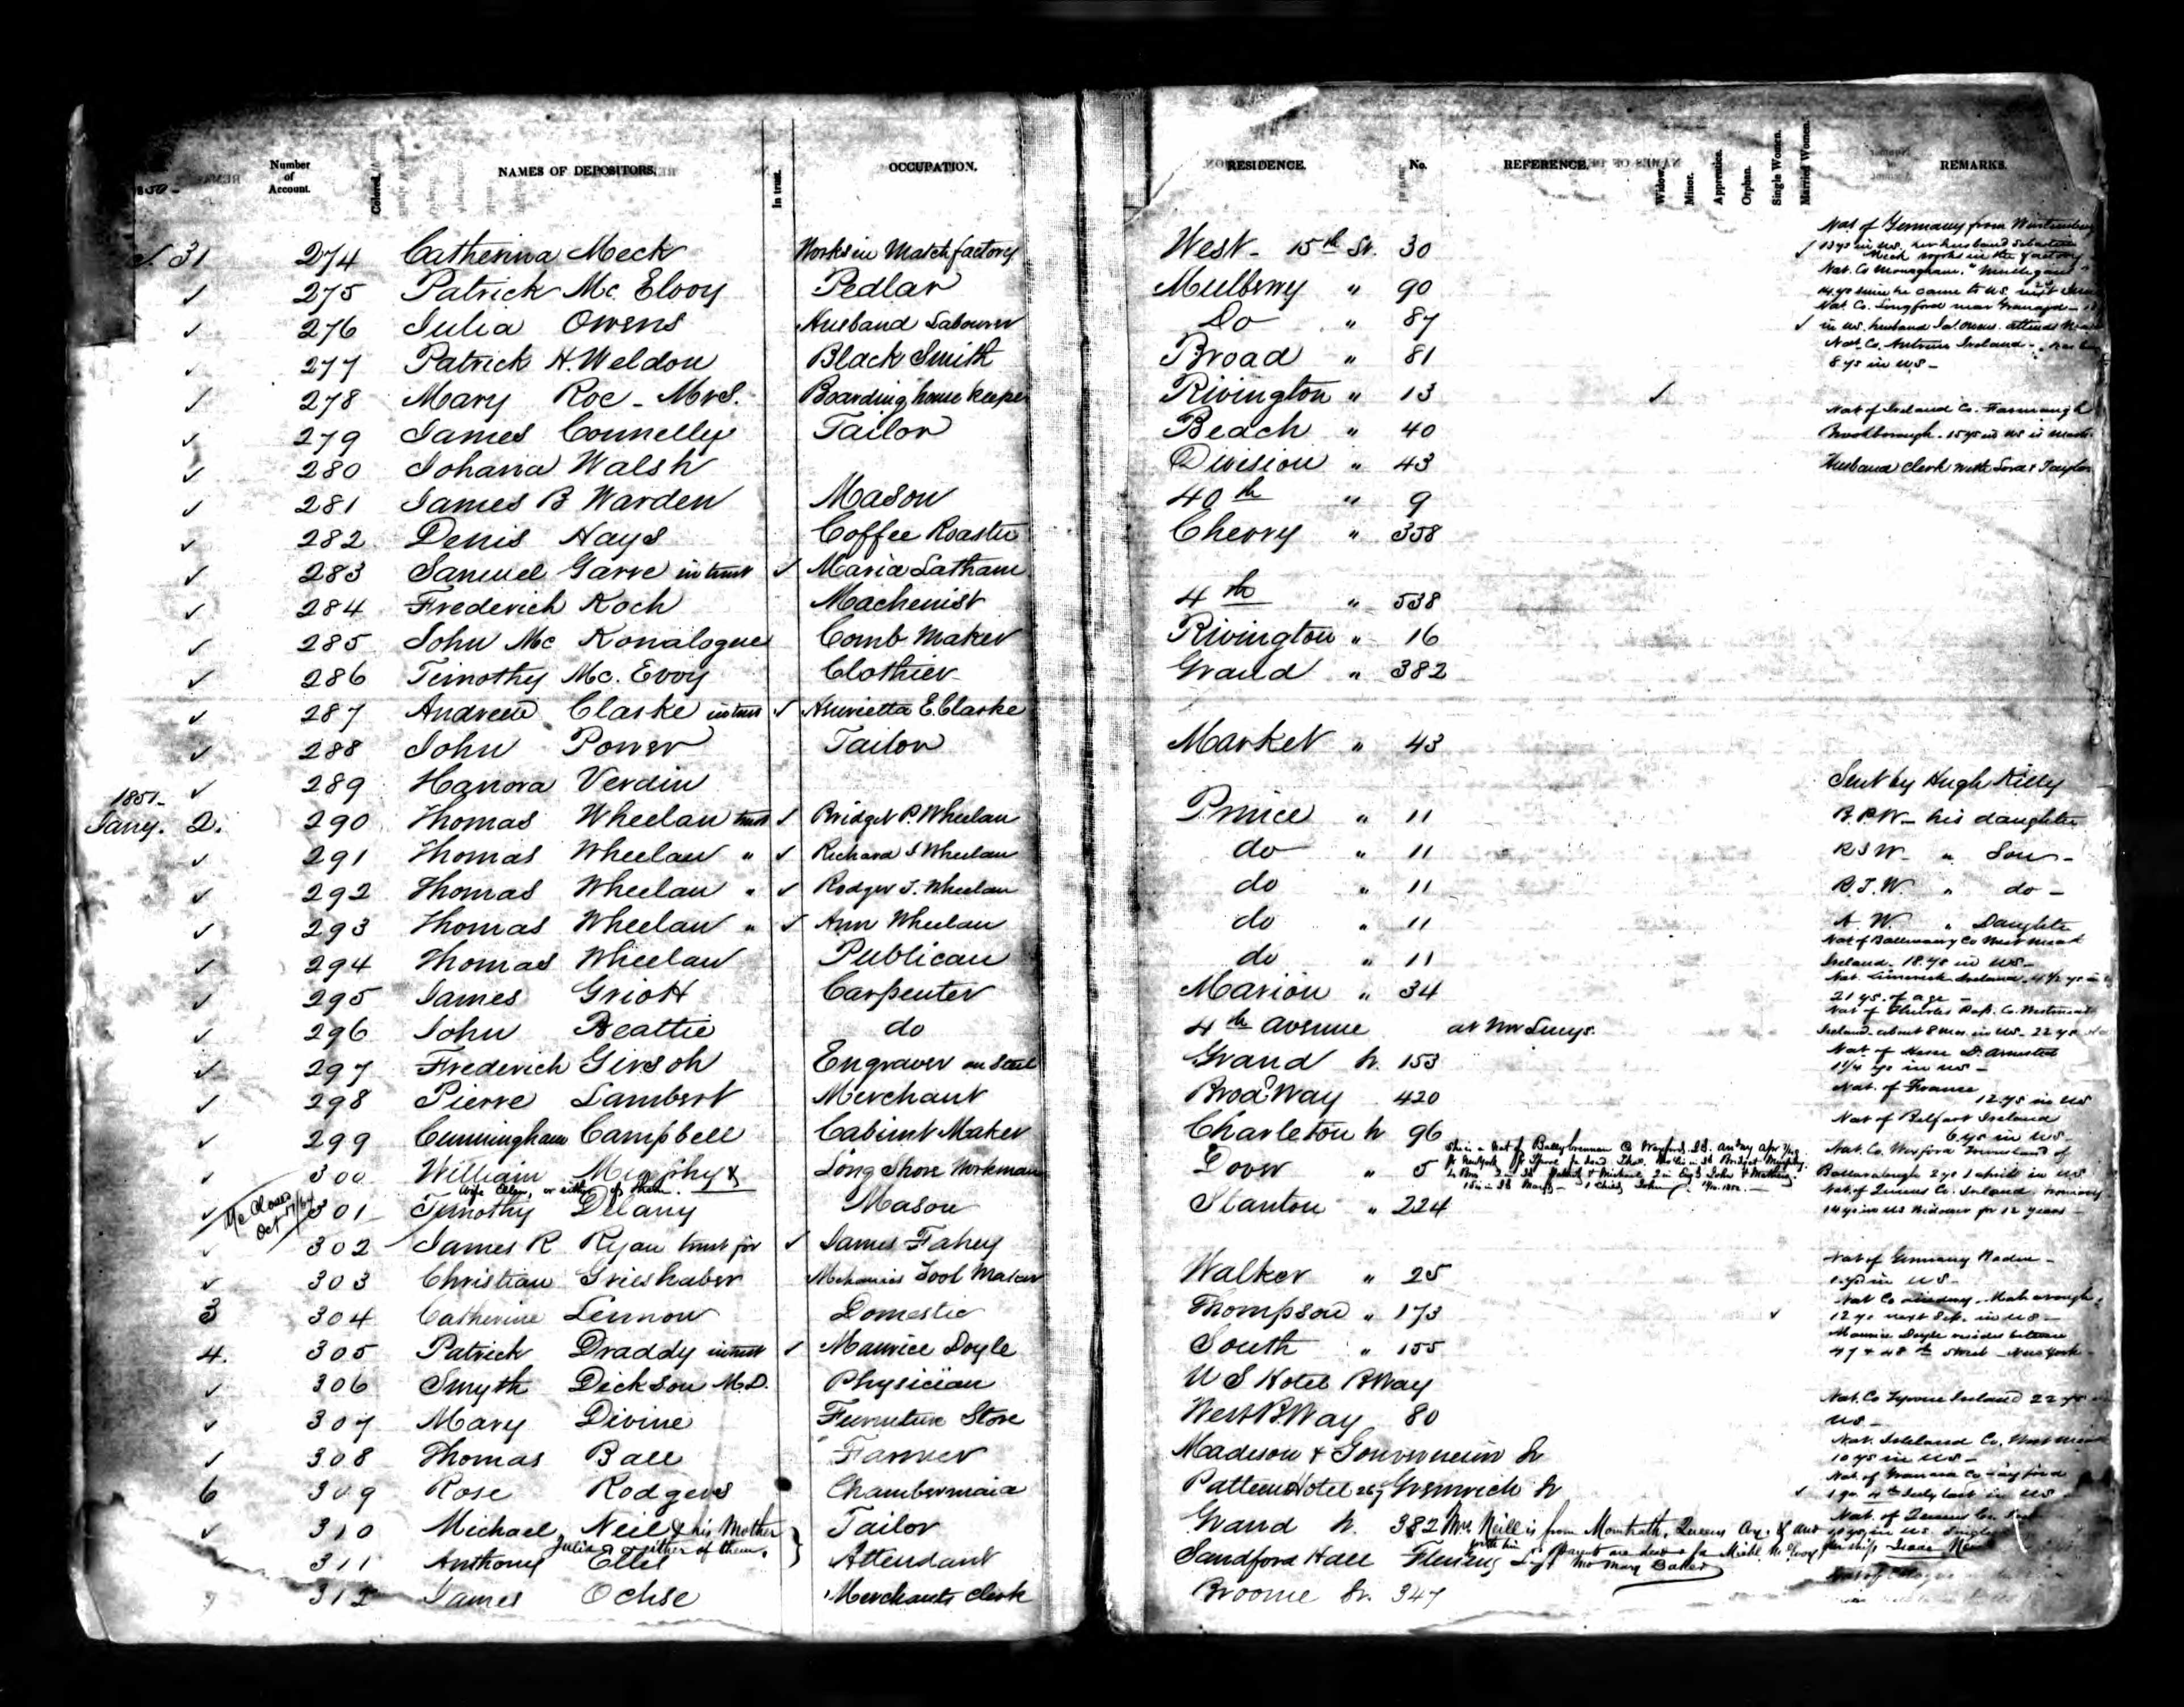 1850 -
Number of Account. Colored. NAMES OF DEPOSITORS. In trust. OCCUPATION. RESIDENCE. No. REFERENCE. Widow. Minor. Apprentice. Orphan. Single Women. Married Women. REMARKS.
Nat of Germany from
31 274 Catherina Meck Works in Match factory West - 15th St. 30 ✓ 13 ys in US. her husband Sebastian
Meck works in the factory
Nat. Co Monaghan.
✓ 275 Patrick Mc. Elvoy Pedlar Mulberry " 90 14 ys since he came to US. next
Nat. Co. Longford near Granard
✓ 276 Julia Owens Husband Labourer Do " 87 ✓ in US. husband Ja.s Owens. attends
Nat. Co. Antrim Ireland -
✓ 277 Patrick H. Weldon Black Smith Broad " 81 8 ys in US -
✓ 278 Mary Roe - Mrs. Boarding house keeper Rivington " 13 ✓
Nat of Ireland Co. Farmaugh
✓ 279 James Connelly Tailor Beach " 40 Brookborough. 15 ys in US is
✓ 280 Johana Walsh Division " 43 Husband Clerk with Lord & Taylor
✓ 281 James B Warden Mason 40th " 9
✓ 282 Denis Hays Coffee Roaster Cherry " 358
✓ 283 Samuel Garre in trust ✓ Maria Latham
✓ 284 Frederich Koch Machenist 4th " 538
✓ 285 John Mc Konalogue Comb Maker Rivington " 16
✓ 286 Timothy Mc. Evoy Clothier Grand " 382
✓ 287 Andrew Clarke in trust ✓ Henrietta E. Clarke
✓ 288 John Power Tailor Market " 43
✓ 289 Hanora Verdin Sent by Hugh Kelly
1851-
Jany. 2. 290 Thomas Wheelan trust ✓ Bridget P. Wheelan Prince " 11 B.P.W - his daughter
✓ 291 Thomas Wheelan " ✓ Richard S Wheelan do " 11 R S W - " Son -
✓ 292 Thomas Wheelan " ✓ Rodger J. Wheelan do " 11 R.J.W. " do -
✓ 293 Thomas Wheelan " ✓ Ann Wheelan do " 11 A. W. " Daughter
Nat of Co West Meath
✓ 294 Thomas Wheelan Publican do " 11 Ireland. 18 ys in US -
Nat. Limerick Ireland. 4½ ys in
✓ 295 James Griott Carpenter Marion " 34 21 ys. of age -
Nat of Co. Westmeath
✓ 296 John Beattie do 4th Avenue at Ireland - about 8 mos. in US - 22 ys
Nat. of Hesse D. Armstat
✓ 297 Frederich Gersoh Engraver on Steel Grand St. 153 1¼ ys in US -
Nat. of France
✓ 298 Pierre Lambert Merchant BroadWay 420 12 ys in US
Nat of Belfast Ireland
✓ 299 Cunningham Campbell Cabinet Maker Charleton St 96 6 ys in US -
She is a Nat of Ballybrennan Co Wexford
Nat. Co. Wexford Townland of
✓ 300 William Murphy & Long Shore Workman Dover " 5 2 ys 1 April in US
wife Ellen, or either of them.
Nat. of Queens Co. Ireland.
A/c Closed Oct 17/64
✓ 301 Timothy Delany Mason Stanton " 224 14 ys in US Widower for 12 years -
✓ 302 James R Ryan trust for ✓ James Fahey
Nat of Germany Baden -
✓ 303 Christian Grieshaber Mechanics Tool Maker Walker " 25 1 ys in US -
3 304 Catherine Lennon Domestic Thompson " 173 ✓ 12 ys next Sep. in US -
Maurice Doyle resides between
4. 305 Patrick Draddy in trust ✓ Maurice Doyle South " 155 47 & 48th Street - New York -
✓ 306 Smyth Dickson M.D. Physician U S Hotel B.Way
Nat. Co Tyrone Ireland 22 ys in
✓ 307 Mary Divine Furniture Store West B.Way 80 US -
Nat. Ireland Co. West Meath
✓ 308 Thomas Ball Farmer Madison & Gouverneur St 10 ys in US -
6 309 Rose Rodgers Chambermaid Patten Hotel Greenwich St ✓ 1 yr. 4th July last in US -
Nat. of Queens Co.
✓ 310 Michael Neil & his Mother Tailor Grand St. 382 Mrs. Neill is from Montrath, Queens Co.
Julia or either of them.
311 Anthony Ellis Attendant Sandford Hall Flushing L.I. Mary Baker
312 James Ochse Merchants Clerk Broome St. 347